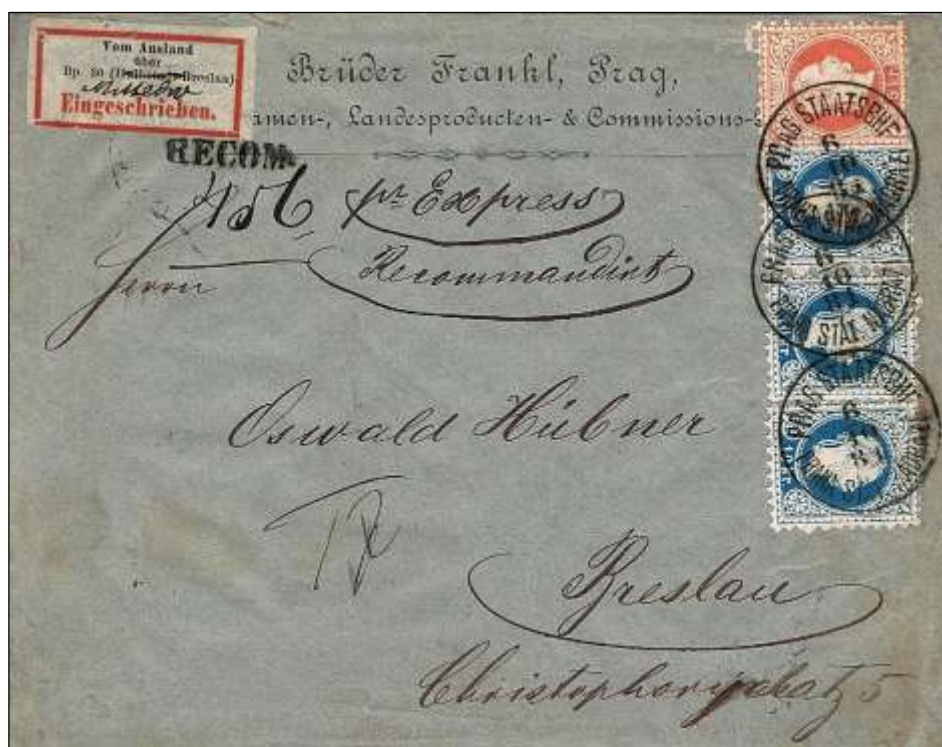 Vom Ausland
über
Bp. 30 Breslau)
Eingeschrieben.
Brüder Frankl, Prag,
amen-, Landesproducten- & Commissions-
RECOM.
156, pr Express
Recommandirt
Herrn
Oswald Hübner
Breslau
Christophoriplatz 5
PRAG STAATSBHF
6
10
PRAG
6
10
81
STAČ. NÁDRAŽÍ
PRAG STAATSBHF
6
10